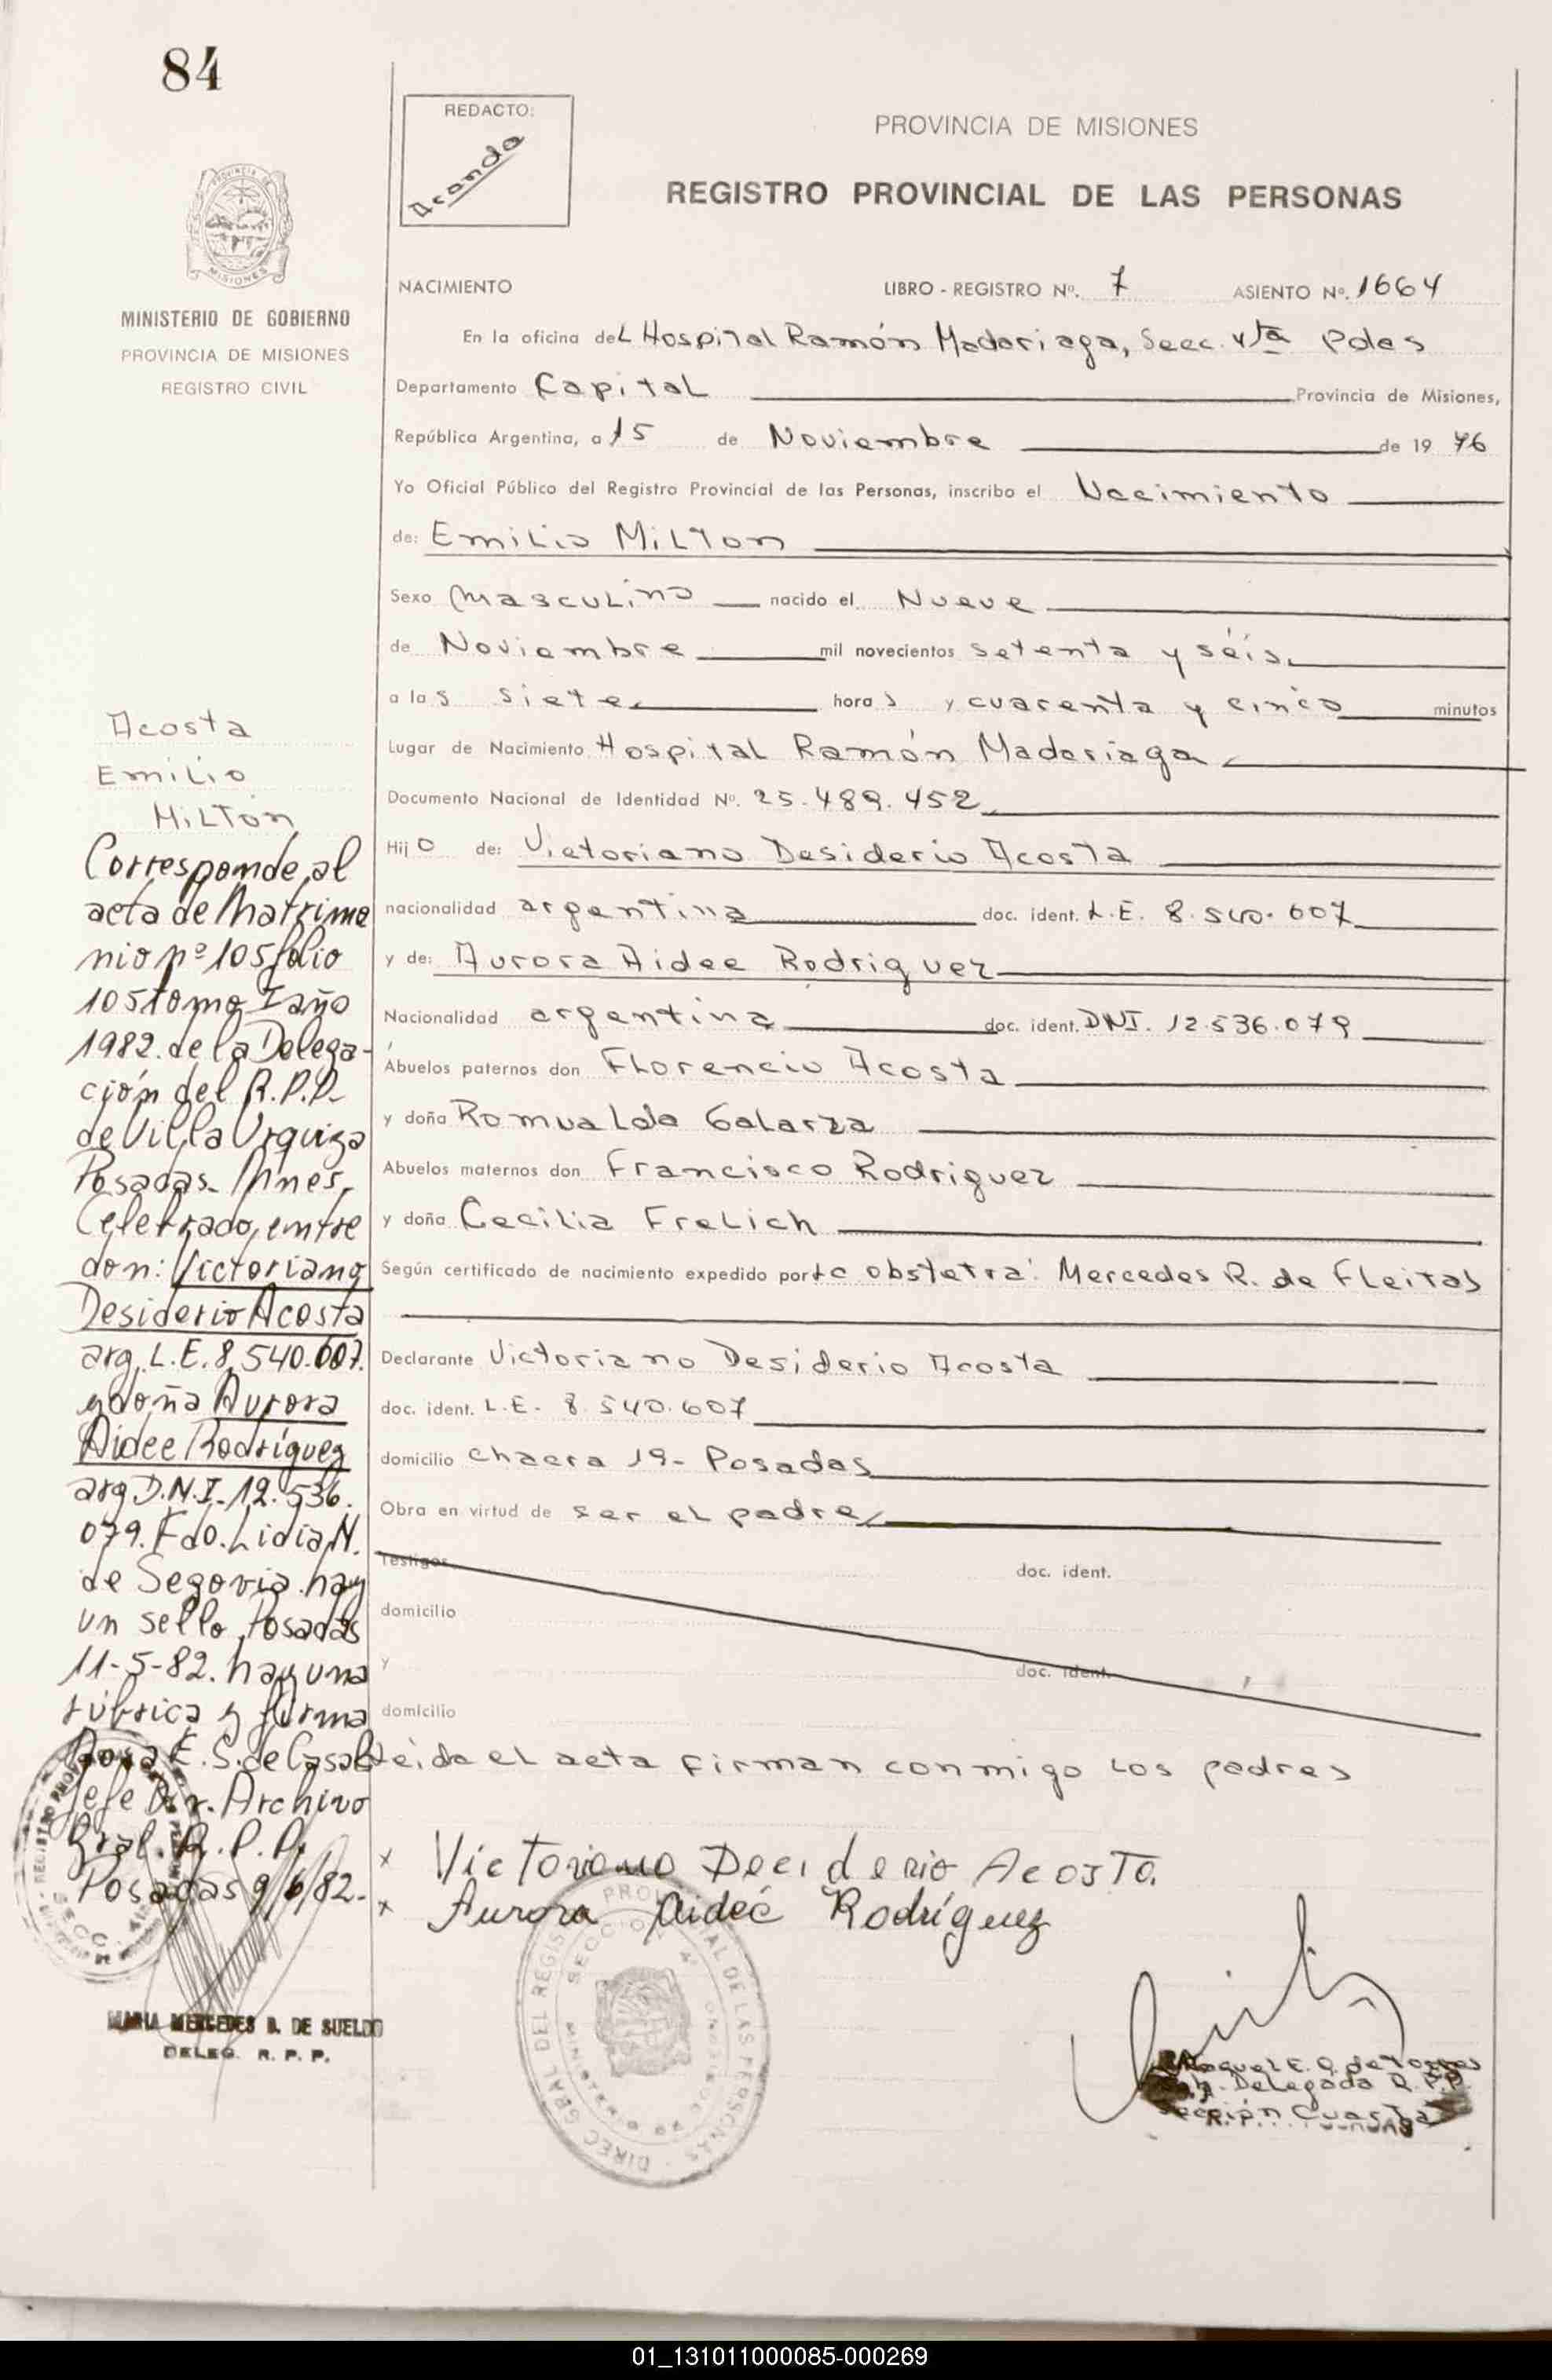 84
REDACTO:
Aranda
PROVINCIA DE MISIONES
REGISTRO PROVINCIAL DE LAS PERSONAS
MISIONES
MINISTERIO DE GOBIERNO
PROVINCIA DE MISIONES
REGISTRO CIVIL
NACIMIENTO LIBRO - REGISTRO Nº. 7 ASIENTO Nº. 1664
En la oficina del Hospital Ramón Madariaga, Secc. 4ta Pdas
Departamento Capital Provincia de Misiones,
República Argentina, a 15 de Noviembre de 19 76
Yo Oficial Público del Registro Provincial de las Personas, inscribo el Nacimiento
de: Emilio Milton
Sexo masculino nacido el Nueve
de Noviembre mil novecientos setenta y séis
a las siete horas y cuarenta y cinco minutos
Lugar de Nacimiento Hospital Ramón Madariaga
Documento Nacional de Identidad Nº. 25.489.452
Hijo de: Victoriano Desiderio Acosta
nacionalidad argentina doc. ident. L.E. 8.540.607
y de: Aurora Aidee Rodriguez
Nacionalidad argentina doc. ident. DNI. 12.536.079
Abuelos paternos don Florencio Acosta
y doña Romualda Galarza
Abuelos maternos don Francisco Rodriguez
y doña Cecilia Frelich
Según certificado de nacimiento expedido por la obstetra: Mercedes R. de Fleitas
Declarante Victoriano Desiderio Acosta
doc. ident. L.E. 8.540.607
domicilio chacra 19- Posadas
Obra en virtud de ser el padre
Testigos doc. ident.
domicilio
y doc. ident.
domicilio
Leida el acta firman conmigo los padres
x Victoriano Deciderio Acosta.
x Aurora Aideé Rodríguez
Acosta
Emilio
Milton
Corresponde al
acta de Matrimo
nio nº 105 folio
105 tomo I año
1982. de la Delega-
ción del R.P.P.
de Villa Urquiza
Posadas. Mnes.
Celebrado entre
don: Victoriano
Desiderio Acosta
arg. L.E. 8.540.607.
y doña Aurora
Aidee Rodríguez
arg D.N.I. 12.536.
079. Fdo. Lidia N.
de Segovia. hay
un sello Posadas
11-5-82. hay una
rúbrica y firma
Rosa E. S. de Casal
Jefe Dir. Archivo
Gral. R.P.P.
Posadas 9/6/82.
MARIA MERCEDES B. DE SUELDO
DELEG. R. P. P.
DIREC. GRAL DEL REGISTRO PROVINCIAL DE LAS PERSONAS
SECCION 4ª
MINISTERIO DE GOBIERNO
Raquel E. Q. de Torres
Delegada R.P.P.
Sección Cuarta
01_131011000085-000269